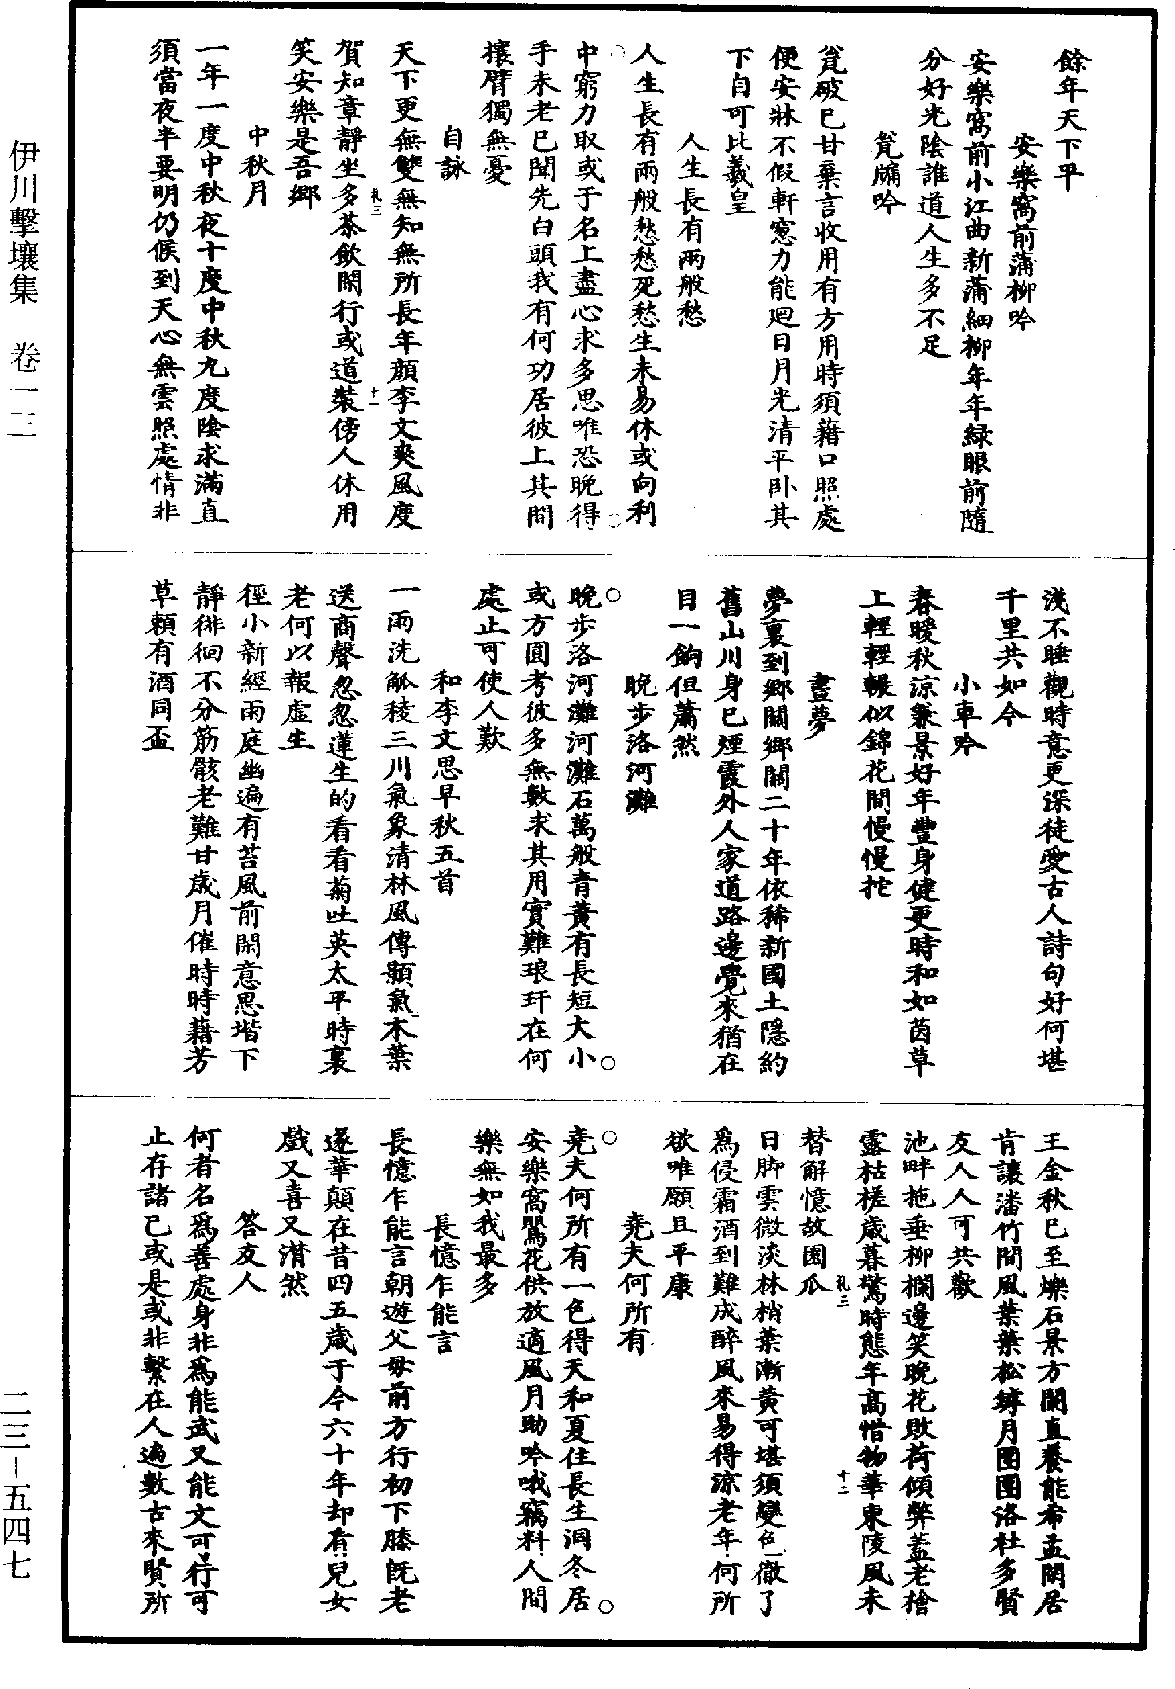 餘年天下平
安樂窩前蒲柳吟
安樂窩前小江曲新蒲細柳年年綠眼前隨
分好光陰誰道人生多不足
瓮牖吟
瓮破已甘棄言收用有方用時須藉口照處
便安牀不假軒窓力能廻日月光清平卧其
下自可比羲皇
人生長有兩般愁
人生長有兩般愁愁死愁生未易休或向利
中窮力取或于名上盡心求多思唯恐晚得
手未老已聞先白頭我有何功居彼上其間
攘臂獨無憂
自詠
天下更無雙無知無所長年顔李文爽風度
賀知章靜坐多茶飲閑行或道裝傍人休用
笑安樂是吾鄉
中秋月
一年一度中秋夜十度中秋九度陰求滿直
須當夜半要明仍候到天心無雲照處情非
淺不睡觀時意更深徒愛古人詩句好何堪
千里共如今
小車吟
春暖秋涼兼景好年豐身健更時和如茵草
上輕輕輾似錦花間慢慢拕
晝夢
夢裏到鄉關鄉關二十年依稀新國土隱約
舊山川身已煙霞外人家道路邊覺來猶在
目一餉但蕭然
晚步洛河灘
晚步洛河灘河灘石萬般青黃有長短大小
或方圓考彼多無數求其用實難琅玕在何
處止可使人歎
和李文思早秋五首
一雨洗觚稜三川氣象清林風傳顥氣木葉
送商聲忽忽蓮生的看看菊吐英太平時裏
老何以報虛生
徑小新經雨庭幽遍有苔風前閑意思堦下
靜徘徊不分筋骸老難甘歲月催時時藉芳
草賴有酒同盃
王金秋已至爍石景方闌直養能希孟閑居
肯讓潘竹間風葉葉松罅月團團洛社多賢
友人人可共歡
池畔拖垂柳欄邊笑晚花敗荷傾弊蓋老檜
露枯槎歲暮驚時態年高惜物華東陵風未
替解憶故園瓜
日脚雲微淡林梢葉漸黃可堪須變色徹了
爲侵霜酒到難成醉風來易得涼老年何所
欲唯願且平康
堯夫何所有
堯夫何所有一色得天和夏住長生洞冬居
安樂窩鶯花供放適風月助吟哦竊料人間
樂無如我最多
長憶乍能言
長憶乍能言朝遊父母前方行初下膝既老
遂華顛在昔四五歲于今六十年却有兒女
戲又喜又潸然
答友人
何者名爲善處身非爲能武又能文可行可
止存諸己或是或非繫在人遍數古來賢所
伊川擊壤集　卷一三
二三－五四七